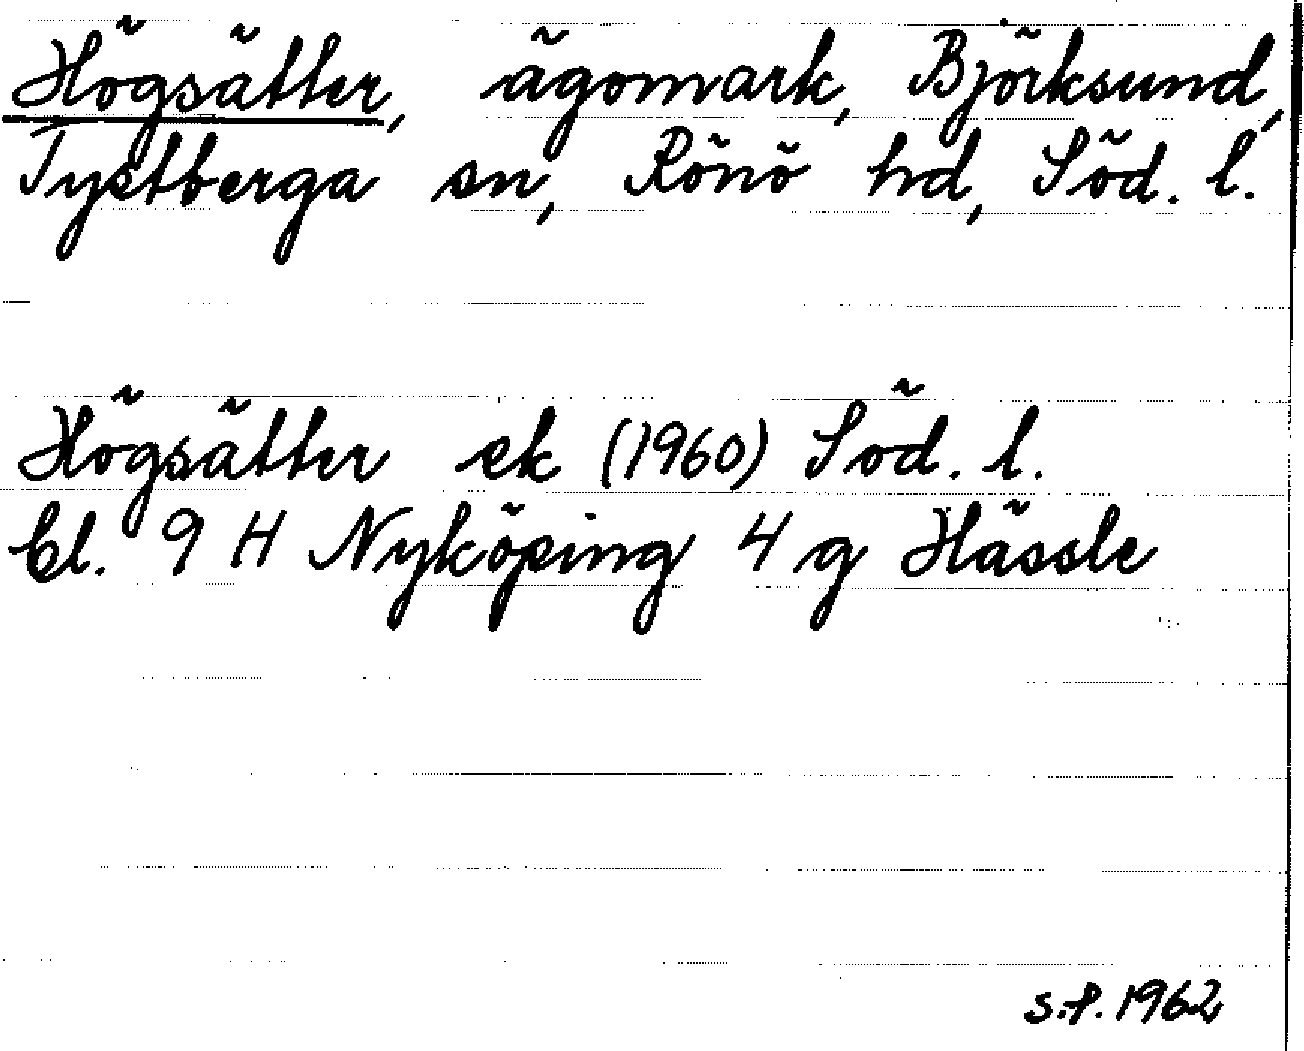 Högsätter, ägomark, Björksund,
Tystberga sn, Rönö hd, Söd. l.
Högsätter ek (1960) Söd. l.
bl. 9 H Nyköping 4 g Hässle
s.f. 1962